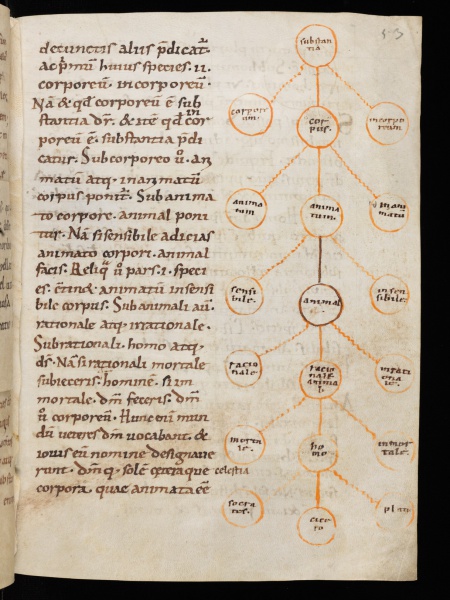 53
decunctis aliis p̄dicat᷑.
Ac p̄mū huius species .ii.
corporeū. incorporeū.
Nā & qd̄ corporeū ē sub
stantia dr̄. & itē qd̄ incor
poreū ē. substantia p̄di
catur. Sub corporeo ū. an
matū atq. inanimatū
corpus ponit᷑. Sub anima
to corpore. animal poni
tur. Nā si sensibile adicias
animato corpori. animal
facis. Reliq̄ ū pars .i. speci
es. animatū insensi
bile corpus. Sub animali aū.
rationale atq. irrationale.
Sub rationali. homo atq.
ds̄. Nā si rationali mortale
subieceris. hominē. si im
mortale. dm̄ feceris. dm̄
ū corporeū. Hunc eni mun
dū veteres dm̄ vocabant. &
iovis eū nomine designave
runt. dm̄q. solē ceteraque celestia
corpora. quae animata eē
substan
tia
corpore
um.
cor
pus.
incorpo
reum
anima
tum
anima
tum.
inani
matū
sensi
bile.
animal
insen
sibile.
racio
nale.
racio
nale
anima
l.
irratio
nale
morta
le
ho
mo
inmor
tale.
socra
tes.
cicero
plato